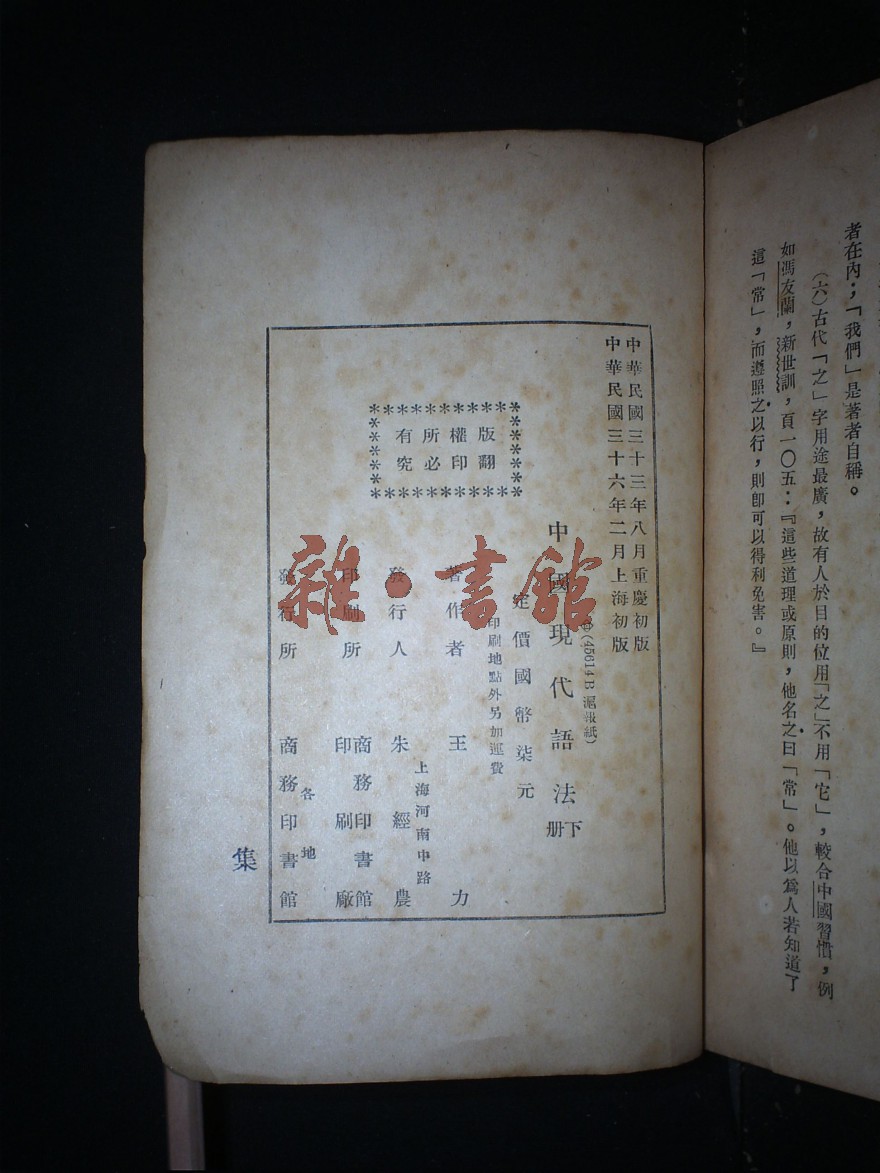 者在內；「我們」是著者自稱。
（六）古代「之」字用途最廣，故有人於目的位用「之」不用「它」，較合中國習慣，例
如馮友蘭，新世訓，頁一〇五：『這些道理或原則，他名之曰「常」。他以爲人若知道了
這「常」，而遵照之以行，則卽可以得利免害。』
中華民國三十三年八月重慶初版
中華民國三十六年二月上海初版
(45614B滬報紙)
中國現代語法 下册
定價國幣柒元
印刷地點外另加運費
版權所有
翻印必究
著作者 王力
發行人 朱經農
上海河南中路
印刷所 商務印書館
印刷廠
發行所 商務印書館
各地
集
雜·書館